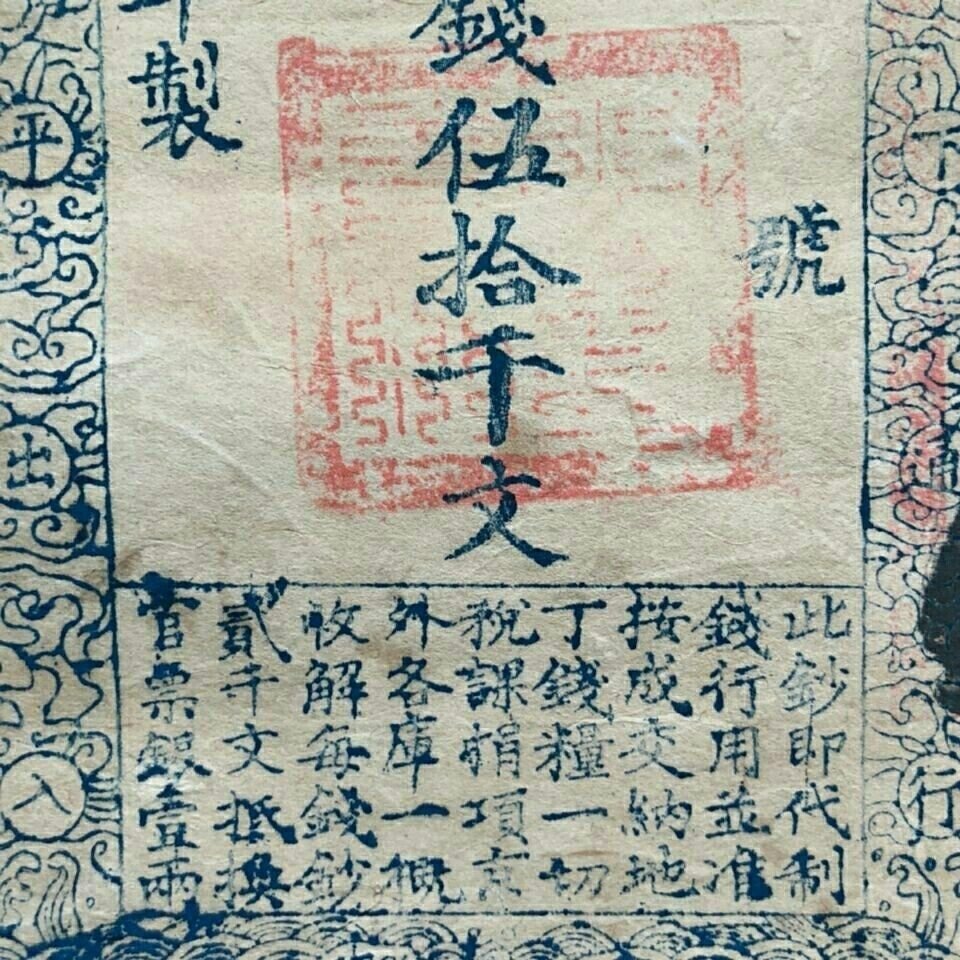 下通行
號
錢伍拾千文
年製
此鈔即代制
錢行用並准
按成交納地
丁錢糧一切
稅課捐項京
外各庫一概
收解每錢鈔
貳千文抵換
官票銀壹兩
平出入